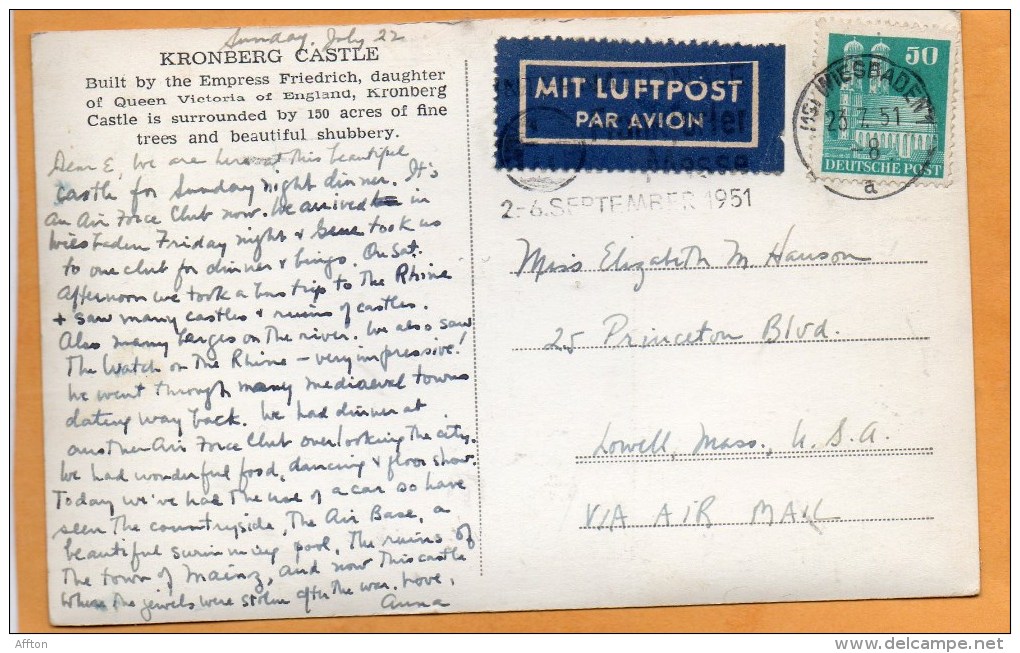 Sunday, July 22
KRONBERG CASTLE
Built by the Empress Friedrich, daughter
of Queen Victoria of England, Kronberg
Castle is surrounded by 150 acres of fine
trees and beautiful shubbery.
Dear E, We are here at this beautiful
castle for Sunday night dinner. It's
an Air Force Club now. We arrived in
Wiesbaden Friday night & Gene took us
to one club for dinner & bingo. On Sat.
afternoon we took a bus trip to the Rhine
& saw many castles & ruins of castles.
Also many barges on the river. We also saw
the Watch on the Rhine - very impressive!
We went through many mediaeval towns
dating way back. We had dinner at
another Air Force Club overlooking the city.
We had wonderful food, dancing & floor show.
Today we've had the use of a car so have
seen the countryside, the Air Base, a
beautiful swimming pool, the ruins of
the town of Mainz, and now this castle
where the jewels were stolen after the war. Love,
Anna
MIT LUFTPOST
PAR AVION
2.-6. SEPTEMBER 1951
50
DEUTSCHE POST
(16) WIESBADEN
23.7.51
8
a
Miss Elizabeth M Hanson
25 Princeton Blvd.
Lowell, Mass, U.S.A.
VIA AIR MAIL
Affton
delcampe.net